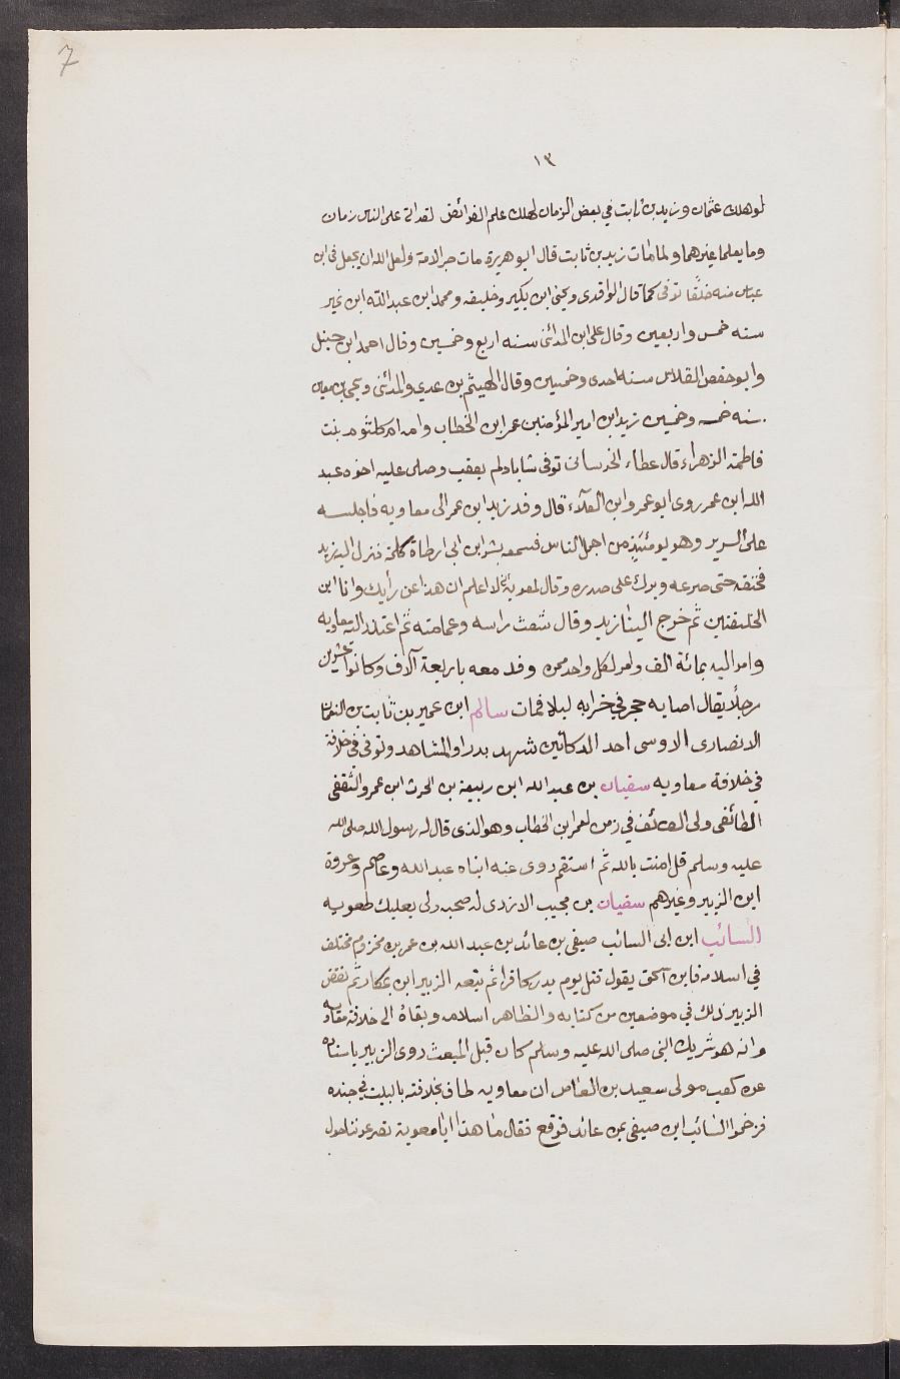 7
١٣
لو هلك عثمان وزيد بن ثابت في بعض الزمان لهلك علم الفرائض لقد اتى على الناس زمان
وما يعلمها غيرهما ولما مات زيد بن ثابت قال ابو هريرة مات حبر الامة ولعل الله ان يجعل في ابن
عباس منه خلفًا توفى كما قال الواقدى ويحيى ابن بكير وخليفه ومحمد ابن عبد الله ابن نمير
سنه خمس واربعين وقال على ابن المدائنى سنه اربع وخمسين وقال احمد ابن حنبل
وابو حفص القلاس سنه احدى وخمسين وقال الهيثم بن عدي والمدائنى ويحيى بن معين
سنه خمسه وخمسين زيد ابن امير المؤمنين عمر ابن الخطاب وامه ام كلثوم بنت
فاطمة الزهراء قال عطاء الخرسانى توفى شابا ولم يعقب وصلى عليه اخوه عبد
الله ابن عمر روى ابو عمرو ابن العلآء قال وفد زيد ابن عمر الى معاويه فاجلسه
على السرير وهو يومئيذٍ من اجمل الناس فسمعه بشر ابن ابي ارطاة كلمة فنزل اليه زيد
فخنقه حتى صرعه وبرك على صدره وقال لمعوية انى لا اعلم ان هذا عن رأيك وانا ابن
الخليفتين ثم خرج الينا زيد وقال شعث راسه وعمامته ثم اعتذر اليه معاويه
وامر اليه بمائة الف ولمر لكل واحد ممن وفد معه باربعة آلاف وكانوا عشرين
رجلًا يقال اصابه حجر في خرابه ليلا فمات سالم ابن عمير بن ثابت بن النعمان
الانصارى الاوسى احد البكائين شهد بدرا والمشاهد وتوفى في خلافة
في خلافة معاويه سفيان بن عبد الله ابن ربيعة بن الحرث ابن عمرو الثقفى
الطائفى ولى الطائف في زمن لعمر ابن الخطاب وهو الذى قال له رسول الله صلى الله
عليه وسلم قل امنت بالله ثم استقم روى عنه ابناه عبد الله وعاصم وعروة
ابن الزبير وغيرهم سفيان بن مجيب الازدى له صحبه ولى بعلبك لمعويه
السائب ابن ابى السائب صيفى بن عائد بن عبد الله بن عمر بن مخزوم مختلف
في اسلامه فابن اسحق يقول قتل يوم بدر كافرا ثم تبعه الزبير ابن بكار ثم نقض
الزبير ذلك في موضعين من كتابه والظاهر اسلامه وبقاه الى خلافة معاويه
وانه هو شريك النبى صلى الله عليه وسلم كان قبل المبعث روى الزبير باسناده
عن كعب مولى سعيد بن العاص ان معاويه طاف بخلافته بالبيت في جنده
فزحموا السائب ابن صيفى بن عائد فوقع فقال ما هذا ايا معوية تصرعوننا حول